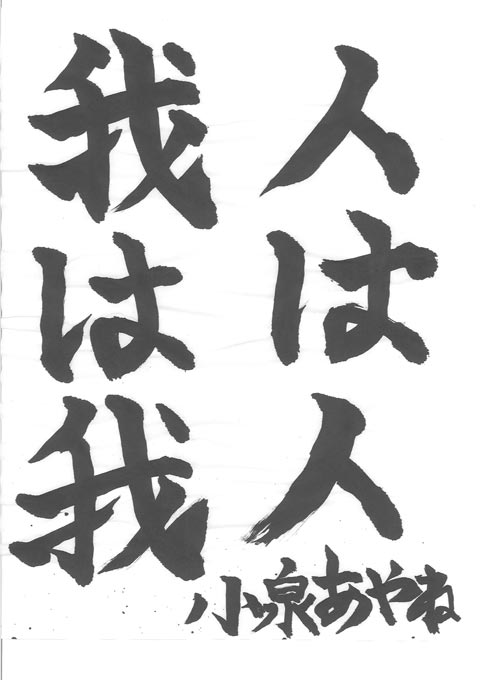 人は人
我は我
小泉あやね